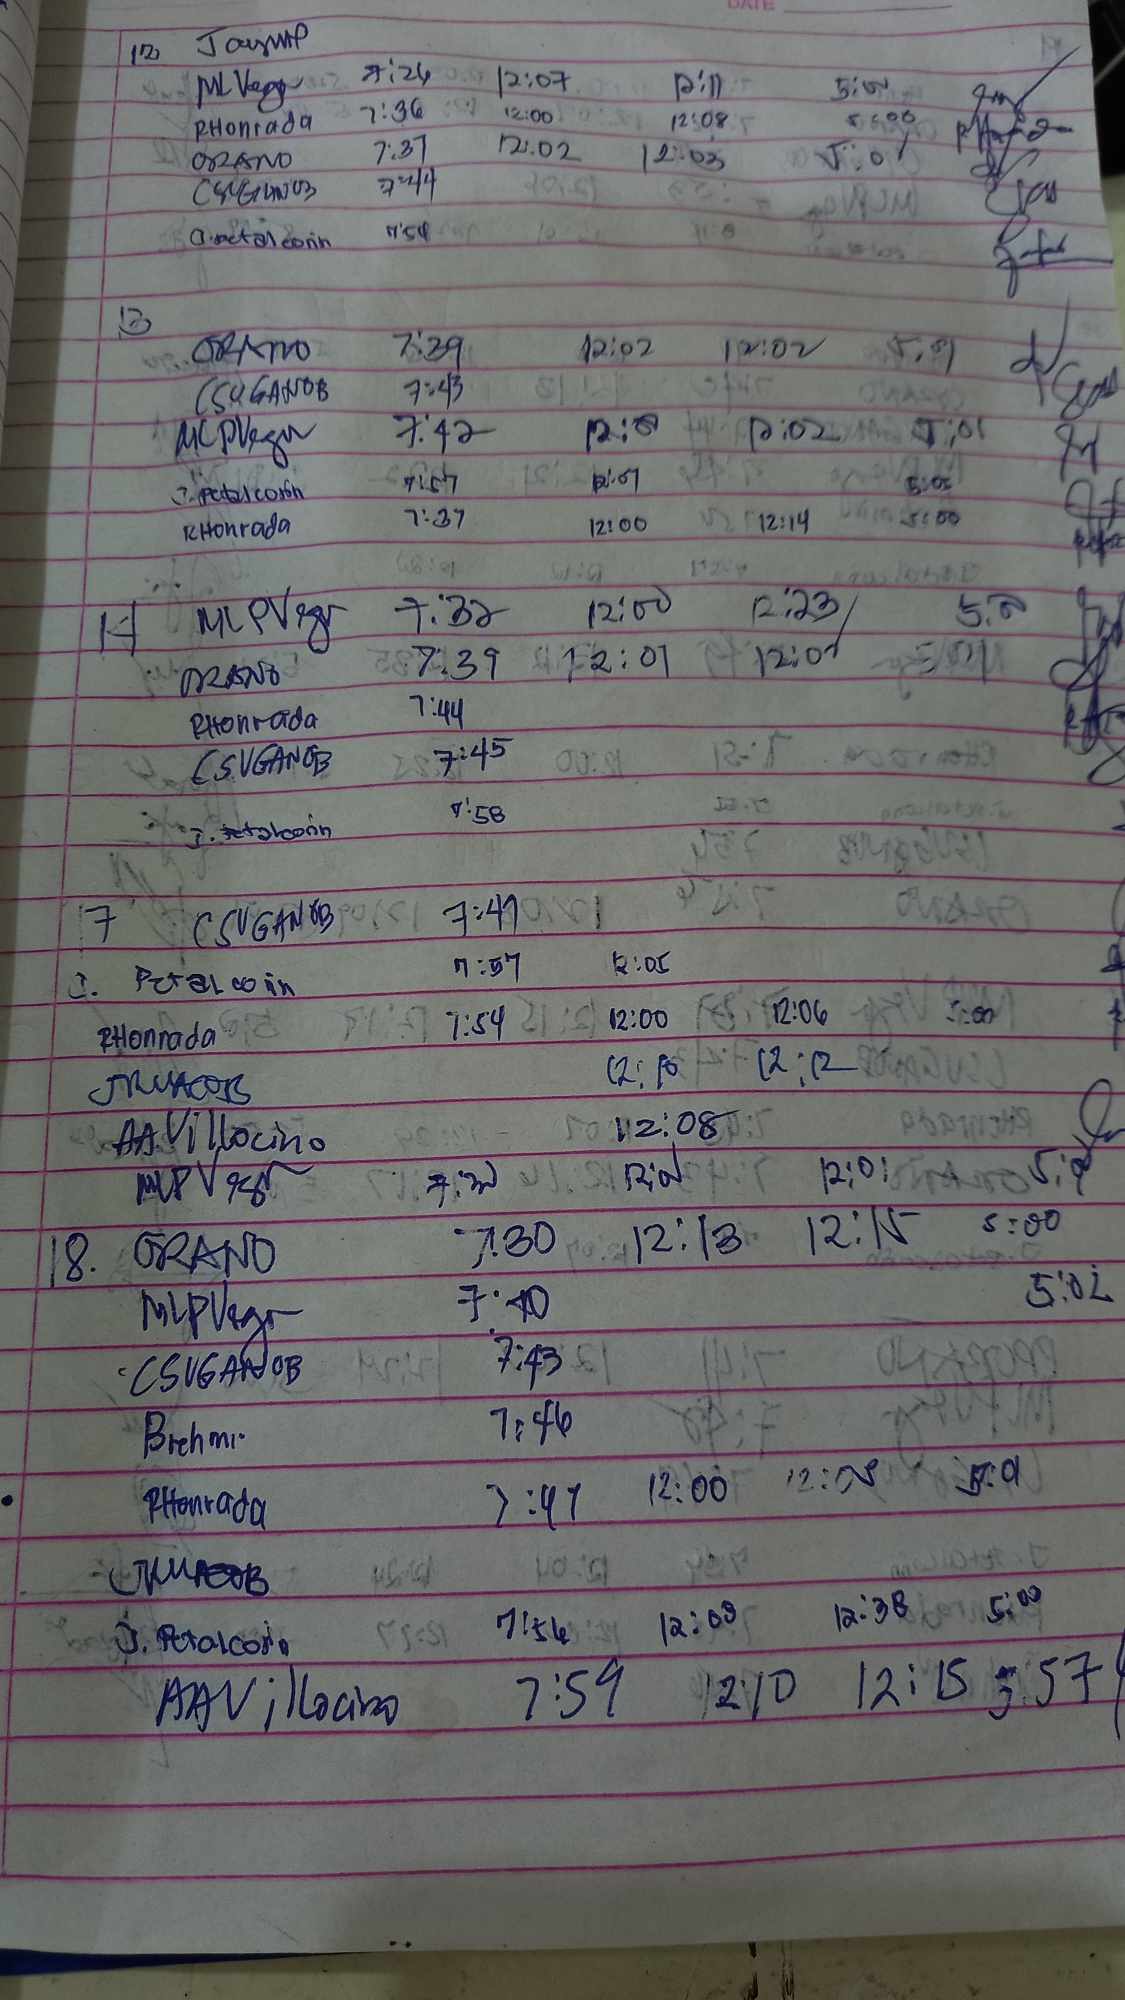 DATE
12
MLVega 7:26 12:07 12:11 5:00
RHonrada 7:36 12:00 12:08 5:00
ORANO 7:37 12:02 12:03 5:01
CSUGANOB 7:44
J. Petalcorin 7:54
13
ORANO 7:39 12:02 12:02 5:01
CSUGANOB 7:43
MLPVega 7:42 12:02 5:01
J. Petalcorin 7:57 12:01 5:05
RHonrada 7:37 12:00 12:14 5:00
14 MLPVega 7:32 12:00 12:23
ORANO 7:39 12:01 12:01
RHonrada 7:44
CSUGANOB 7:45
J. Petalcorin 7:58
17 CSUGANOB 7:47
J. Petalcorin 7:57 12:05
RHonrada 7:54 12:00 12:06 5:00
12:10 12:12
AAVillocino 12:08
MLPVega 12:01
18. ORANO 7:30 12:13 12:15 5:00
MLPVega 7:40 5:02
CSUGANOB 7:43
Brehmi 7:46
RHonrada 7:47 12:00 12:05 5:01
J. Petalcorin 7:56 12:09 12:38 5:00
AAVillocino 7:59 12:10 12:15 5:57